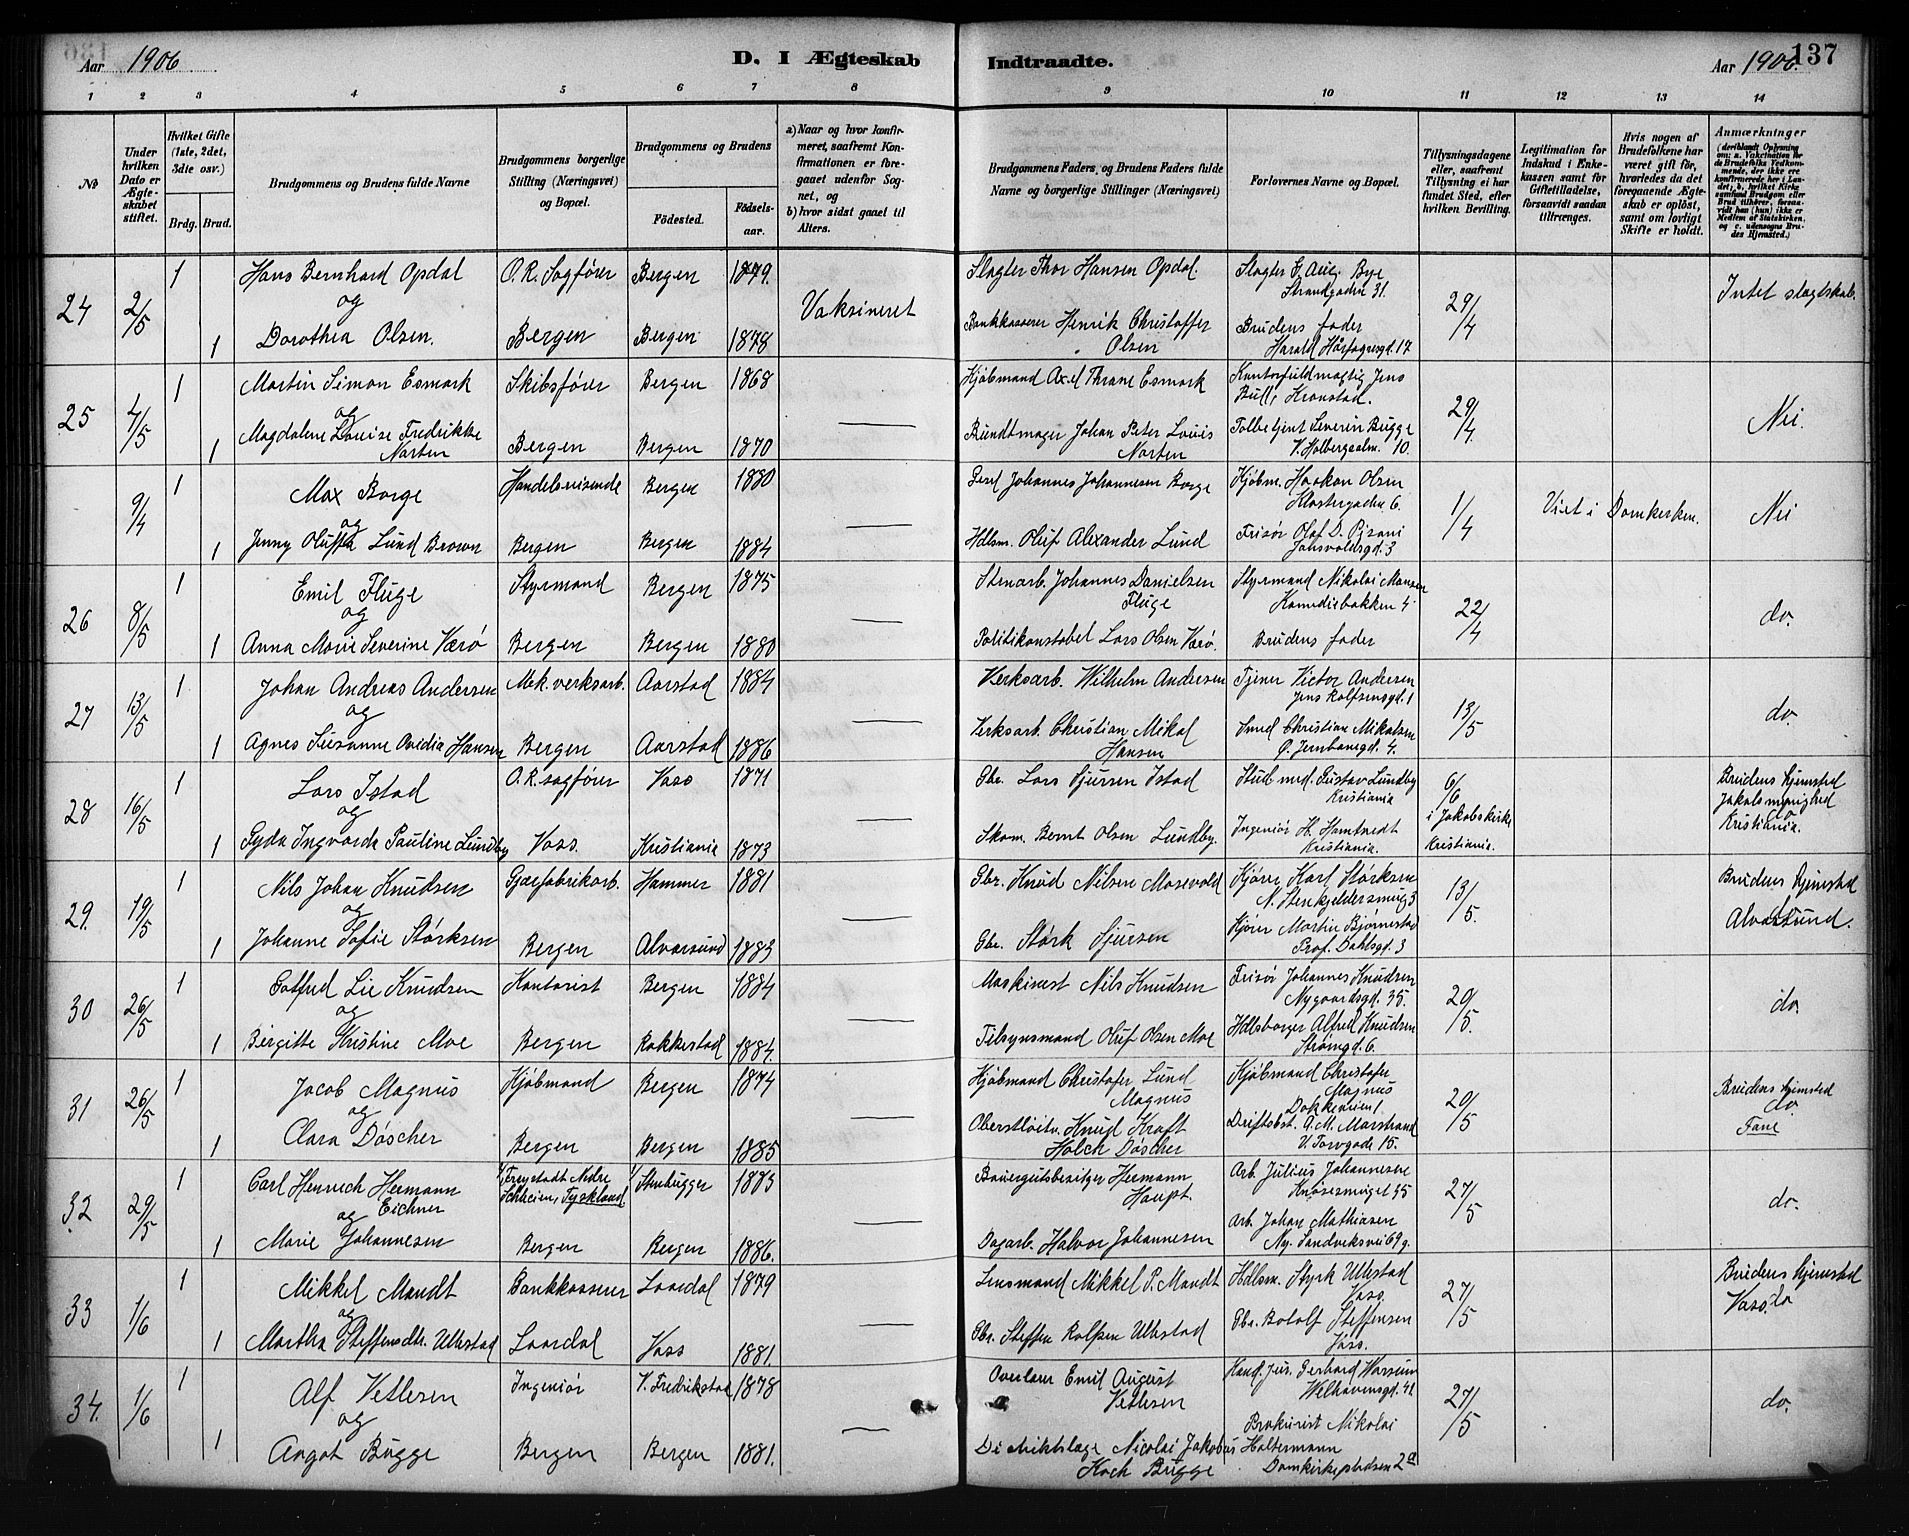 Aar 1906
D. I Ægteskab
Indtraadte.
Aar 1906.
137
1 2 3 4 5 6 7 8 9 10 11 12 13 14
No
Under hvilken Dato er Ægteskabet stiftet.
Hvilket Gifte (1ste, 2det, 3die osv.)
Brdg. Brud.
Brudgommens og Brudens fulde Navne
Brudgommens borgerlige Stilling (Næringsvei) og Bopæl.
Brudgommens og Brudens
Födested. Födselsaar.
a) Naar og hvor konfirmeret, saafremt Konfirmationen er foregaaet udenför Sognet, og
b) hvor sidst gaaet til Alters.
Brudgommens Faders, og Brudens Faders fulde Navne og borgerlige Stillinger (Næringsvei)
Forlovernes Navne og Bopæl.
Tillysningsdagene eller, saafremt Tillysning ei har fundet Sted, efter hvilken Bevilling.
Legitimation for Indskud i Enkekassen samt for Giftetilladelse, forsaavidt saadan tiltrænges.
Hvis nogen af Brudefolkene har været gift för, hvorledes da det foregaaende Ægteskab er oplöst, samt om lovligt Skifte er holdt.
Anmærkninger (deriblandt Oplysning om: a. Vakcination for de Brudefolks Vedkommende, der ikke ere konfirmerede her i Landet; b. hvilket Kirkesamfund Brudgom eller Brud tilhörer, forsaavidt han (hun) ikke er Medlem af Statskirken, og c. udensogns Brudes Hjemsted.)
24 2/5 1 Hans Bernhard Opdal O.R. Sagfører Bergen 1879. Vaksineret Slagter Thor Hansen Opdal. Slagter J. Aug. Bye Strandgaden 31. 29/4 Intet slægtskab.
og
1 Dorothea Olsen. Bergen Bergen 1878 Bankkasserer Henrik Christoffer Olsen Brudens fader Harald Hårfagresgd. 17
25 4/5 1 Martin Simon Esmark Skibsfører Bergen 1868 Kjøbmand Axel Thrane Esmark Kontorfuldmægtig Jens Bull, Kronstad. 29/4. Nei.
og
1 Magdalene Louise Fredrikke Norten Bergen Bergen 1870 Bundtmager Johan Peter Louis Norten Toldbetjent Severin Bugge V. Holbergsalm. 10.
9/4 1 Max Borge Handelsreisende Bergen 1880 Johannes Johannesen Borge Kjøbm. Haakon Olsen Klostergaden 6. 1/4 Viet i Domkirken. Nei
og
1 Jenny Lund Brown Bergen Bergen 1884 Hdlsm. Oluf Alexander Lund Frisør Olaf D. Pizani 3
26 8/5 1 Emil Fluge Styrmand Bergen 1875 Stenarb. Johannes Danielsen Fluge Styrmand Nikolai Monsen Komediebakken 4 22/4 do.
og
1 Anna Marie Severine Værø Bergen Bergen 1880 Politikonstabel Lars Olsen Værø. Brudens fader
27 13/5 1 Johan Andreas Andersen Mek. verksarb. Aarstad 1884 Verksarb. Wilhelm Andersen Tjener Victor Andersen Jens Rolfsensgd. 1 13/5 do.
og
1 Agnes Susanne Ovidia Hansen Bergen Aarstad 1886 Verksarb. Christian Mikal Hansen Smed Christian Mikalsen G. Jernbanegd. 4.
28 16/5 1 Lars Istad O.R. sagfører Voss 1871 Gbr. Lars Sjursen Istad Stud med. Gustav Lundby Kristiania 6/6 i Jakobskirke Kristiania. Brudens hjemsted Jakobs menighed do Kristiania.
og
1 Gyda Ingvarda Pauline Lundby Voss. Kristiania 1873 Skom. Bernt Olsen Lundby. Ingeniør H. Kristiania.
29. 19/5 1 Nils Johan Knudsen Gjærfabrikarb. Hammer 1881 Gbr. Knud Nilsen Mosevold Kjører Karl Størksen N. Stenkjeldersmug 3 13/5. Brudens hjemsted Alversund.
og
1 Johanne Sofie Størksen Bergen Alversund 1883 Gbr. Størk Sjursen Kjører Martin Bjørnestad Prof. Dahlsgd. 3
30 26/5 1 Gotfred Lie Knudsen Kontorist Bergen 1884 Maskinist Nils Knudsen Frisør Johannes Knudsen Nygaardsgd. 35. 20/5. do.
og
1 Birgitte Kristine Moe Bergen Rakkestad 1884. Tilsynsmand Oluf Olsen Moe Hdlsborger Alfred Knudsen Strømgd. 6.
31 26/5 1 Jacob Magnus Kjøbmand Bergen 1874 Kjøbmand Christofer Lund Magnus Kjøbmand Christofer Magnus Dokkeveien 1. 20/5 Brudens hjemsted do Fane
og
1 Clara Døscher Bergen Bergen 1885 Oberstløitn. Knud Kraft Holck Døscher Driftsbst. G.M. Marstrand V. Torvgade 15.
32. 29/5 1 Carl Heinrich Hermann Eichner Freystadt Nedre Schlesien, Tyskland Stenhugger 1883 Bauergutsbesitzer Hermann Haupt. Arb. Julius Johannesen Knøsesmuget 35 27/5 do.
og
1 Marie Johannesen Bergen Bergen 1886. Dagarb. Halvor Johannesen Arb. Johan Mathiasen Ny. Sandviksvei 69 g.
33 1/6 1 Mikkel Mandt Bankkasserer Laardal 1879 Lensmand Mikkel P. Mandt Hdlsm. Styrk Ullestad Voss. 27/5 Brudens hjemsted Voss. do
og
1 Martha Steffensdtr. Ullestad Laardal Voss 1881. Gbr. Steffen Rolfsen Ullestad Gbr. Botolf Steffensen Voss.
34. 1/6 1 Alf Vetlesen Ingeniør V. Fredrikstad 1878 Overlærer Emil August Vetlesen Kand. Jur. Gerhard Wassum Welhavensgd. 41 27/5 do.
og
1 Aagot Bugge Bergen Bergen 1881. Distriktslæge Nicolai Jakobus Koch Bugge Prokurist Nikolai Holtermann Domkirkepladsen 2a